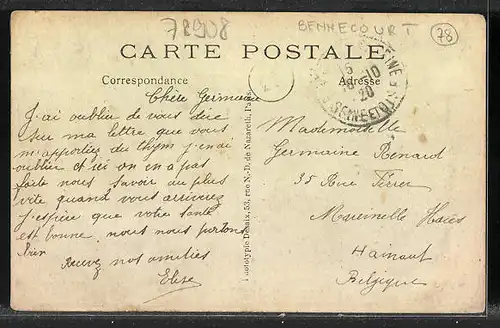 78908
BENNECOURT
78
CARTE POSTALE
Correspondance
Adresse
Chère Germaine
J'ai oublier de vous dire
sur ma lettre que vous
m'apportiez du thym j'en ai
oublier et ici on en a pas
faite nous savoir au plus
vite quand vous arriverez
j'espère que votre santé
est bonne nous nous portons
bien
Recevez nos amitiés
Elise
Phototypie Desaix, 53, rue N.-D. de Nazareth, Paris
18 -10
20
SEINE ET OISE
Mademoiselle
Germaine Renard
35 Rue Ferrer
Haies
Hainaut
Belgique